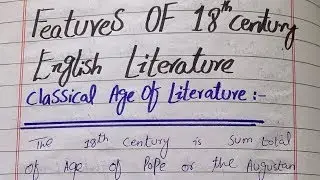 Features OF 18th Century
English Literature
Classical Age Of Literature :-
The 18th Century is Sum total
of Age of Pope or the Augustan